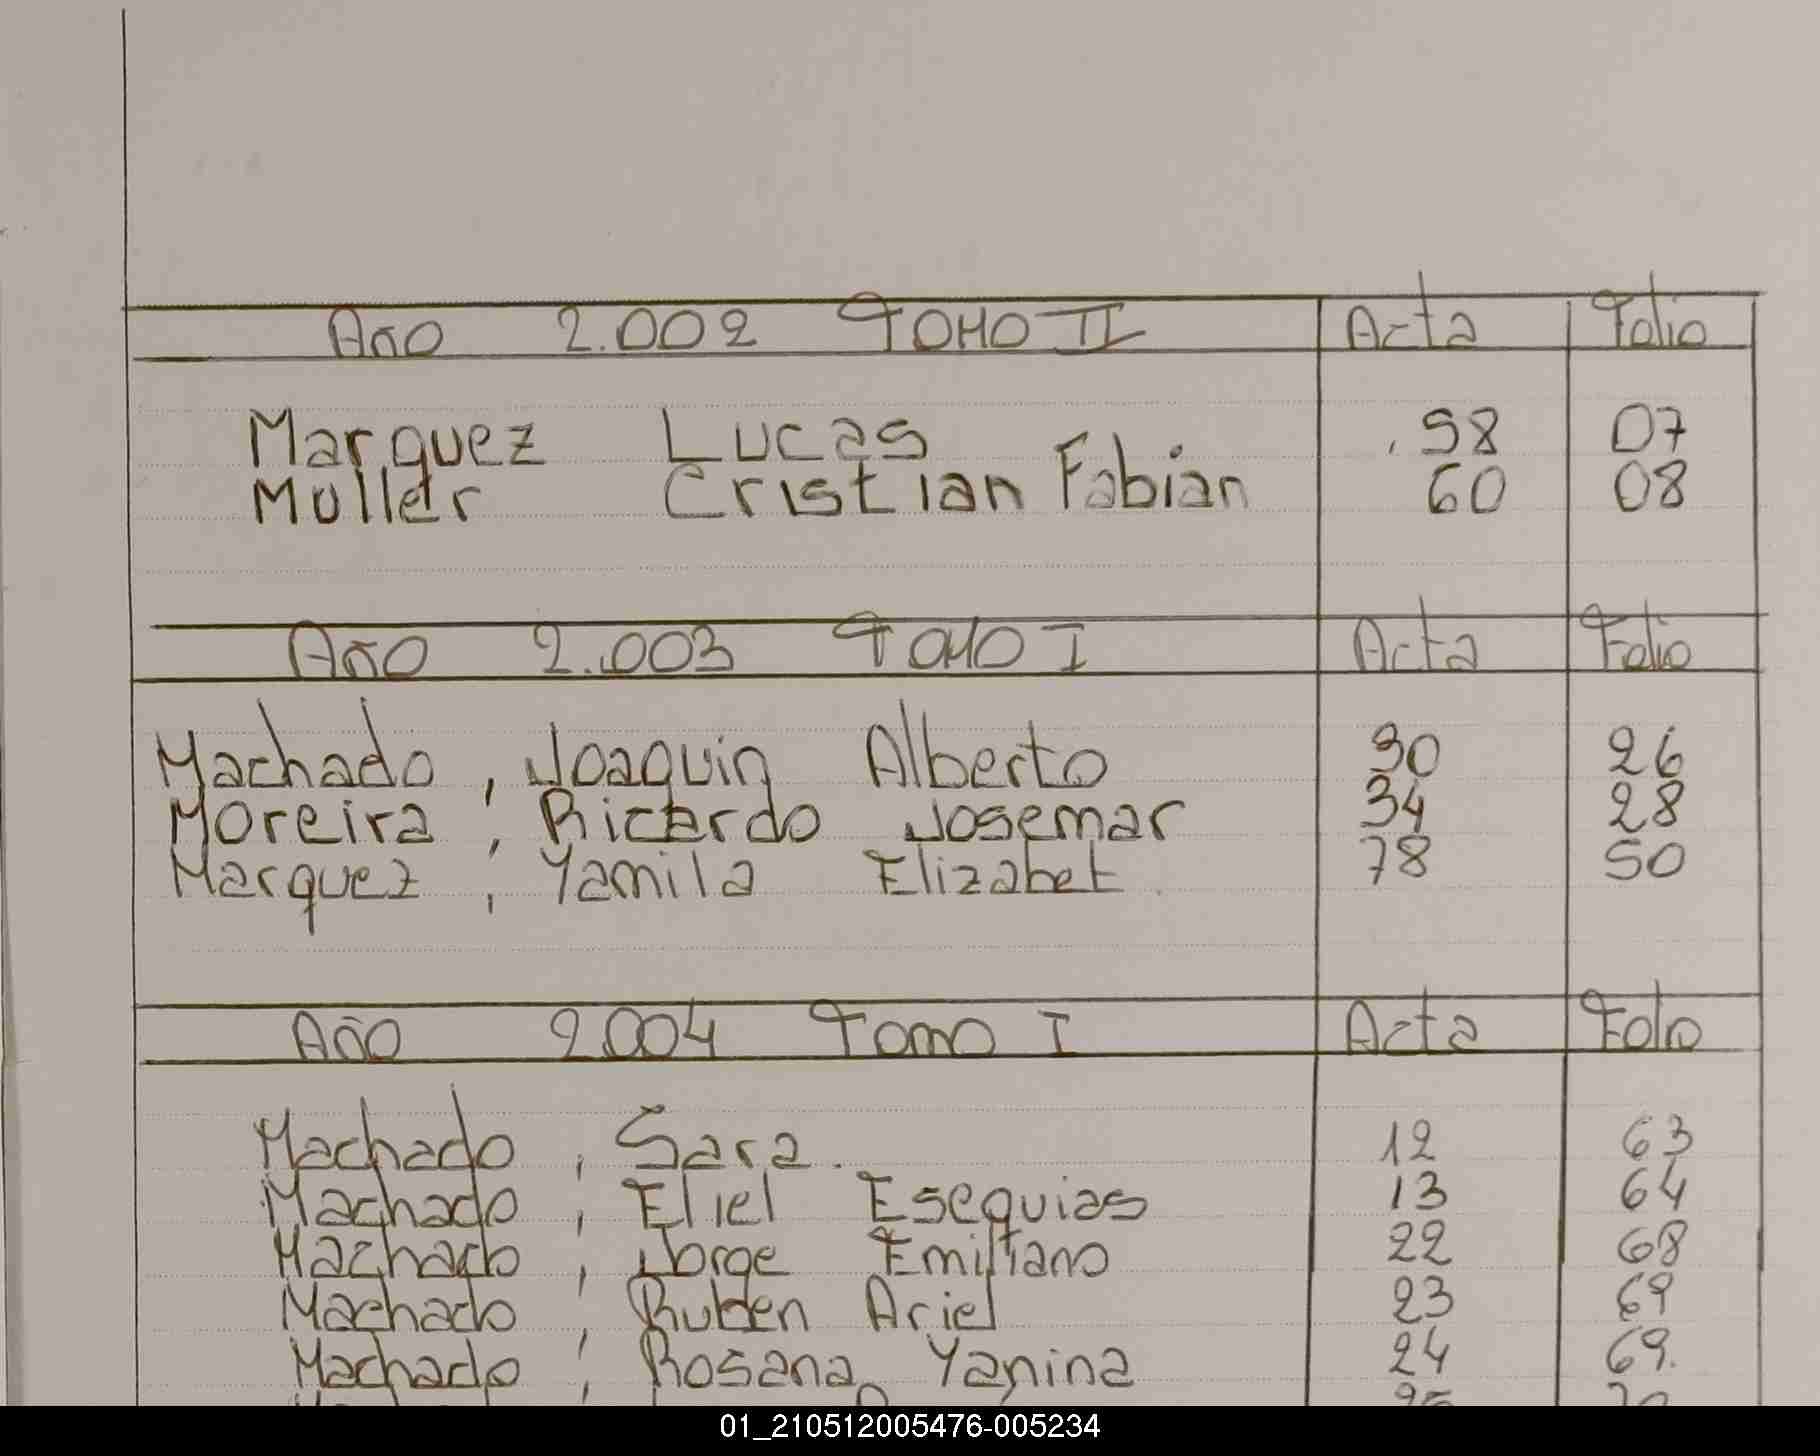 Año 2.002 TOMO II Acta Folio
Marquez Lucas 58 07
Muller Cristian Fabian 60 08
Año 2.003 TOMO I Acta Folio
Machado, Joaquin Alberto 30 26
Moreira, Ricardo Josemar 34 28
Marquez, Yamila Elizabet 78 50
Año 2004 Tomo I Acta Folio
Machado, Sara. 12 63
Machado, Eliel Esequias 13 64
Machado, Jorge Emiliano 22 68
Machado, Ruben Ariel 23 69
Machado, Rosana Yanina 24 69.
01_210512005476-005234